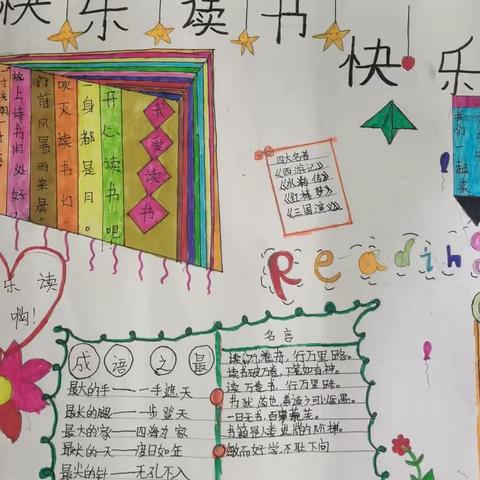 快乐读书
快乐
我爱读书
开心读书吧！
一身都是月。
吹灭读书灯
门前风暴雨来晨。
枕上诗书闲处好
我们一起来
四大名著
《西游记》
《水浒传》
《红楼梦》
《三国演义》
Reading
乐读
啊！
成语之最
最大的手——一手遮天
最长的腿——一步登天
最大的家——四海为家
最长的一天——度日如年
最尖的针——无孔不入
名言
读万卷书，行万里路。
读书破万卷，下笔如有神。
读万卷书，行万里路。
书犹药也，善读之可以医愚。
一日无书，百事荒芜。
书籍是人类进步的阶梯。
敏而好学，不耻下问